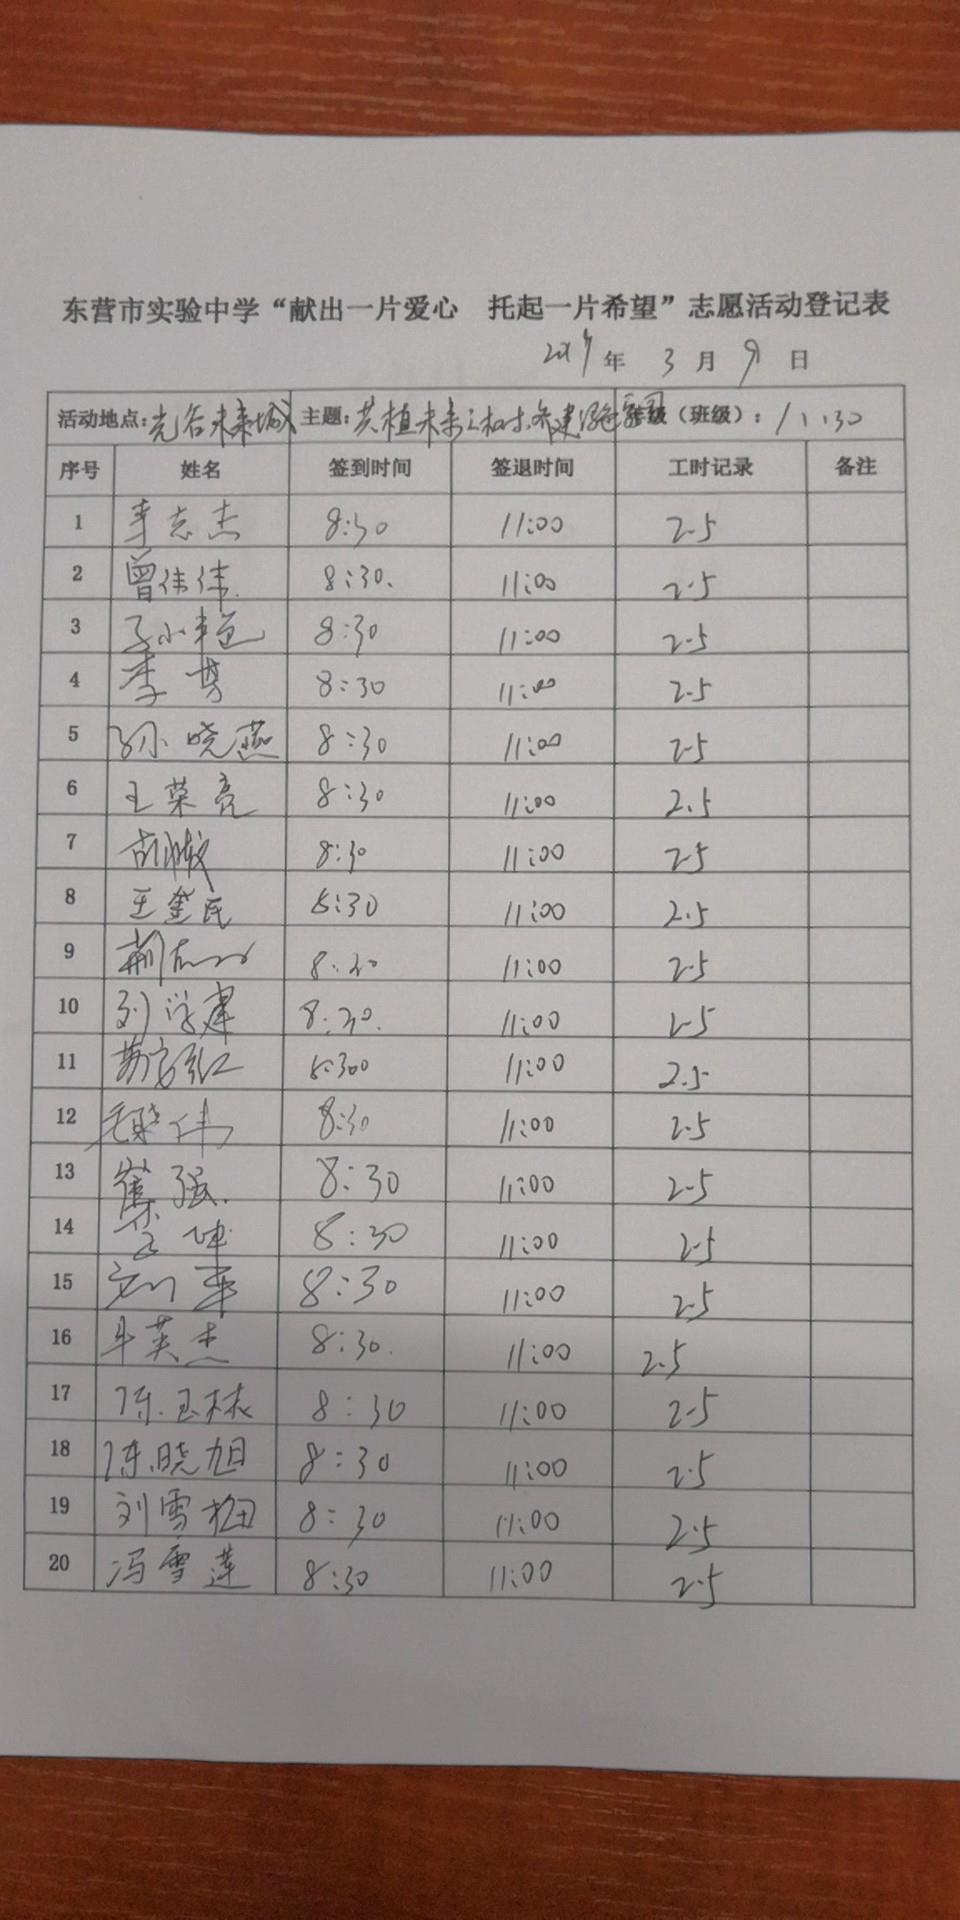 东营市实验中学“献出一片爱心 托起一片希望”志愿活动登记表
年 3 月 9 日
活动地点：光谷未来城 主题：共植未来之树 （班级）：
序号 姓名 签到时间 签退时间 工时记录 备注
1 李志杰 8:30 11:00 2.5
2 曾伟伟 8:30 11:00 2.5
3 8:30 11:00 2.5
4 李 8:30 11:00 2.5
5 孙晓燕 8:30 11:00 2.5
6 王荣亮 8:30 11:00 2.5
7 8:30 11:00 2.5
8 王奎民 8:30 11:00 2.5
9 8:30 11:00 2.5
10 刘学建 8:30 11:00 2.5
11 11:00 2.5
12 毛晓伟 8:30 11:00 2.5
13 崔强 8:30 11:00 2.5
14 8:30 11:00 2.5
15 8:30 11:00 2.5
16 牛英杰 8:30 11:00 2.5
17 陈玉林 8:30 11:00 2.5
18 陈晓旭 8:30 11:00 2.5
19 刘雪梅 8:30 11:00 2.5
20 冯雪莲 8:30 11:00 2.5